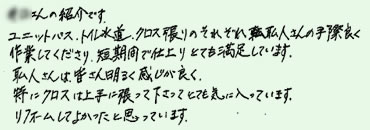 さんの紹介です。
ユニットバス、トイレ水道、クロス張りのそれぞれ職人さんの手際良く
作業してくださり、短期間で仕上りとても満足しています。
職人さんは皆さん明るく感じが良く、
特にクロスは上手に張って下さってとても気に入っています。
リフォームしてよかったと思っています。